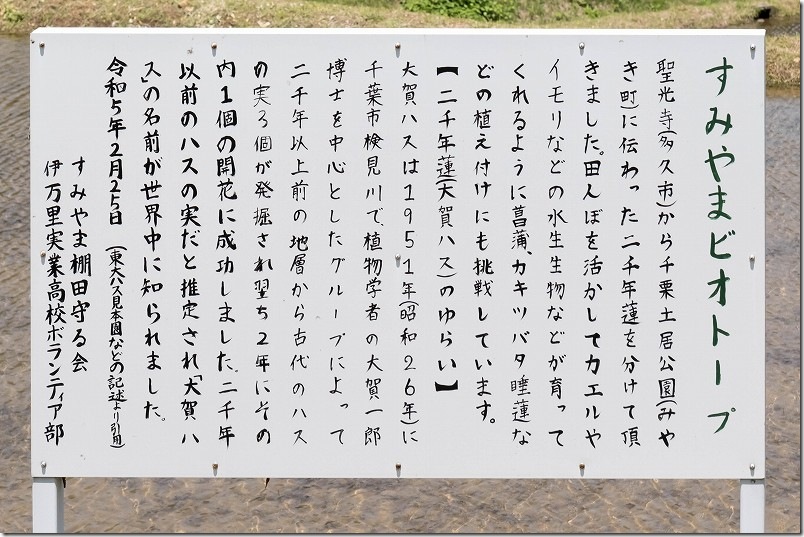 すみやまビオトープ
聖光寺(多久市)から千栗土居公園(みや
き町)に伝わった二千年蓮を分けて頂
きました。田んぼを活かしてカエルや
イモリなどの水生生物などが育って
くれるように菖蒲、カキツバタ睡蓮な
どの植え付けにも挑戦しています。
【二千年蓮(大賀ハス)のゆらい】
大賀ハスは1951年(昭和26年)に
千葉市検見川で、植物学者の大賀一郎
博士を中心としたグループによって
二千年以上前の地層から古代のハス
の実3個が発掘され翌ち2年にその
内1個の開花に成功しました。二千年
以前のハスの実だと推定され「大賀ハ
ス」の名前が世界中に知られました。
令和5年2月25日 (東大ハス見本園などの記述より引用)
すみやま棚田守る会
伊万里実業高校ボランティア部